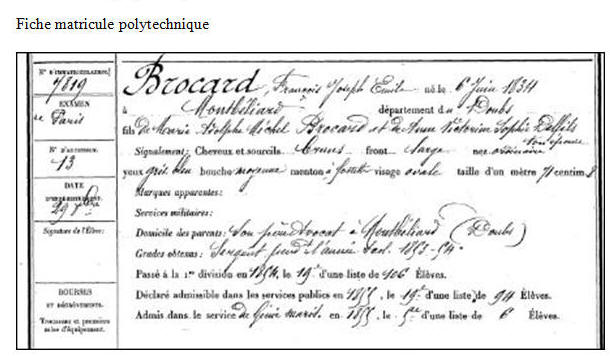 Fiche matricule polytechnique
N° D'IMMATRICULATION
7819
EXAMEN
de Paris
N° D'
13
DATE
29 8bre
Signature de l'Élève:
BOURSES
ET DÉGRÈVEMENTS.
Trousseau et première
mise d'équipement.
Brocard, François Joseph Emile né le 6 Juin 1834
à Montbéliard département du Doubs
fils de Marie Adolphe Michel Brocard et de Anne Victorine Sophie son épouse
Signalement: Cheveux et sourcils bruns front large nez ordinaire
yeux gris bleu bouche moyenne menton à fossette visage ovale taille d'un mètre 71 centim.
Marques apparentes:
Services militaires:
Domicile des parents: Son père avocat à Montbéliard (Doubs)
Grades obtenus: Sergent pend. l'année scol. 1853-54
Passé à la 1re division en 1854, le 19e d'une liste de 106 Élèves.
Déclaré admissible dans les services publics en 1855, le 19e d'une liste de 94 Élèves.
Admis dans le service de Génie marit. en 1855, le 5e d'une liste de 6 Élèves.